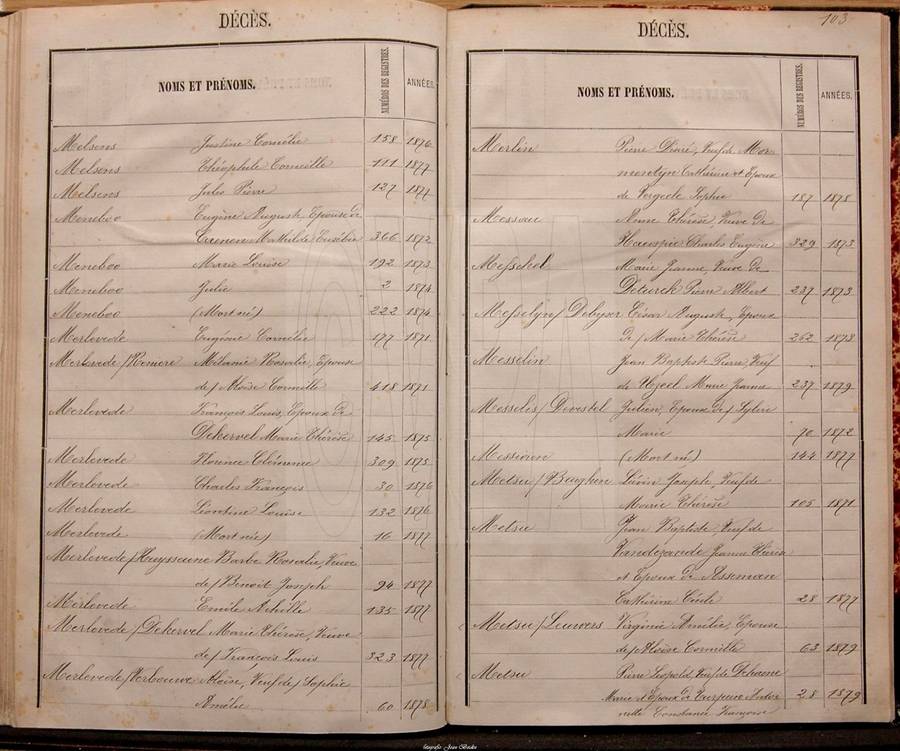 DÉCÈS.
NOMS ET PRÉNOMS. NUMÉROS DES REGISTRES. ANNÉES.
Melsens Justine Cornélie 158 1876
Melsens Théophile Corneille 111 1877
Melsens Jules Pierre 127 1877
Meneboo Eugène Auguste, Epoux de
Mathilde Eusébie 366 1872
Meneboo Marie Louise 192 1873
Meneboo Julie 2 1874
Meneboo (Mort né) 222 1874
Merlevede Eugénie Cornélie 177 1871
Merlevede / Remere Mélanie Rosalie, Epouse
de / Aloïse Corneille 418 1871
Merlevede François Louis, Epoux de
Dekervel Marie Thérèse 145 1875
Merlevede Florence Clémence 309 1875
Merlevede Charles François 30 1876
Merlevede Leontine Louise 132 1876
Merlevede (Mort née) 16 1877
Merlevede / Huyssenne Barbe Rosalie, Veuve
de / Benoit Joseph 94 1877
Merlevede Emile Achille 135 1877
Merlevede / Dekervel Marie Thérèse, Veuve
de / François Louis 323 1877
Merlevede / Verbouwe Aloïse, Veuf de / Sophie
Amélie 60 1878
103
DÉCÈS.
NOMS ET PRÉNOMS. NUMÉROS DES REGISTRES. ANNÉES.
Merlin Pierre Désiré, Veuf de Mor-
Catherine et Epoux
de Sophie 187 1878
Messeau Anne Thérèse, Veuve de
Hauspie Charles Eugène 329 1873
Messchol Marie Jeanne, Veuve de
Deturck Pierre Albert 237 1873
Messelyn / Debyser César Auguste, Epoux
de / Marie Thérèse 262 1873
Messelin Jean Baptiste Pierre, Veuf
de Uzeel Marie Jeanne 237 1879
Messelis / Devestel Julien, Epoux de / Sylvie
Marie 70 1872
Messiaen (Mort né) 144 1877
Metsu / Brughen Livin Joseph, Veuf de
Marie Thérèse 105 1871
Metsu Jean Baptiste, Veuf de
Jeanne Thérèse
et Epoux de Asseman
Catherine Cécile 28 1877
Metsu / Leuwers Virginie Amélie, Epouse
de / Aloïse Corneille 63 1879
Metsu Pierre Léopold, Veuf de Dehaene
Marie et Epoux de Turpeine Antoi-
nette Constance Françoise 28 1879
fotografie Jean Beeke